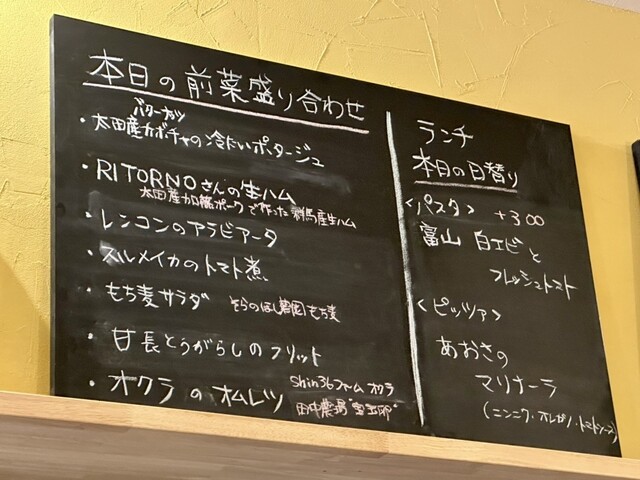 本日の前菜盛り合わせ
バターナッツ
・太田産カボチャの冷たいポタージュ
・RITORNOさんの生ハム
太田産加藤ポークで作った群馬産生ハム
・レンコンのアラビアータ
・スルメイカのトマト煮
・もち麦サラダ そらのほし農園もち麦
・甘長とうがらしのフリット
・オクラのオムレツ Shin36ファームオクラ
田中農場"宝玉卵"
ランチ
本日の日替り
<パスタ> +300
富山 白エビと
フレッシュトマト
<ピッツァ>
あおさの
マリナーラ
(ニンニク・オレガノ・トマトソース)